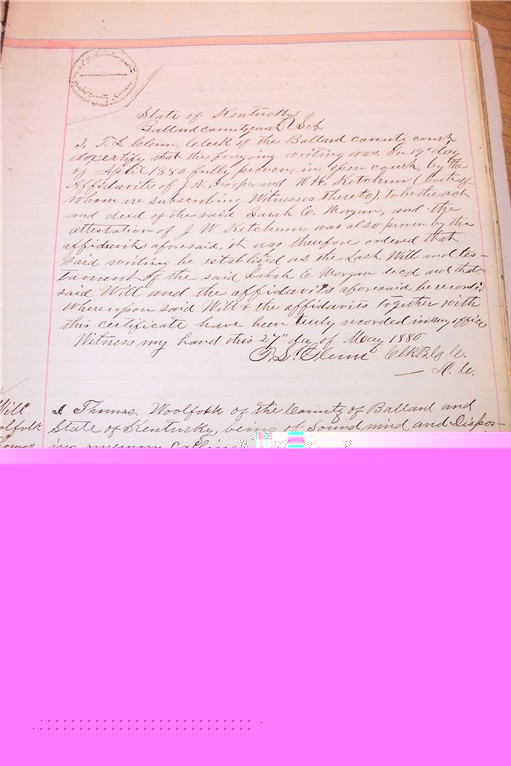 State of Kentucky
Ballard county court Sct
I, T. S. Clerk of the Ballard county court
do certify that the foregoing writing was on 19" day
of April 1880 fully proven in open court by the
Affidavits of J. N. Hooper and W. H. Ketchum (both of
whom are subscribing Witnesses thereto) to be the act
and deed of the said Sarah E. Morgan, and the
attestation of J. W. Ketchum was also proven by the
affidavits aforesaid, it was therefore ordered that
said writing be establised as the Last Will and tes-
tament of the said Sarah E. Morgan decd and that
said Will and the affidavits aforesaid be record
Whereupon said Will & the affidavits together with
this certificate have been truly recorded in my office
Witness my hand this 27" day of May 1880
T. S. Clk
D. C.
Will I Thomas Woolfolk of the County of Ballard and
olfolk State of Kentucky being of Sound mind and Dispos-
ing memory